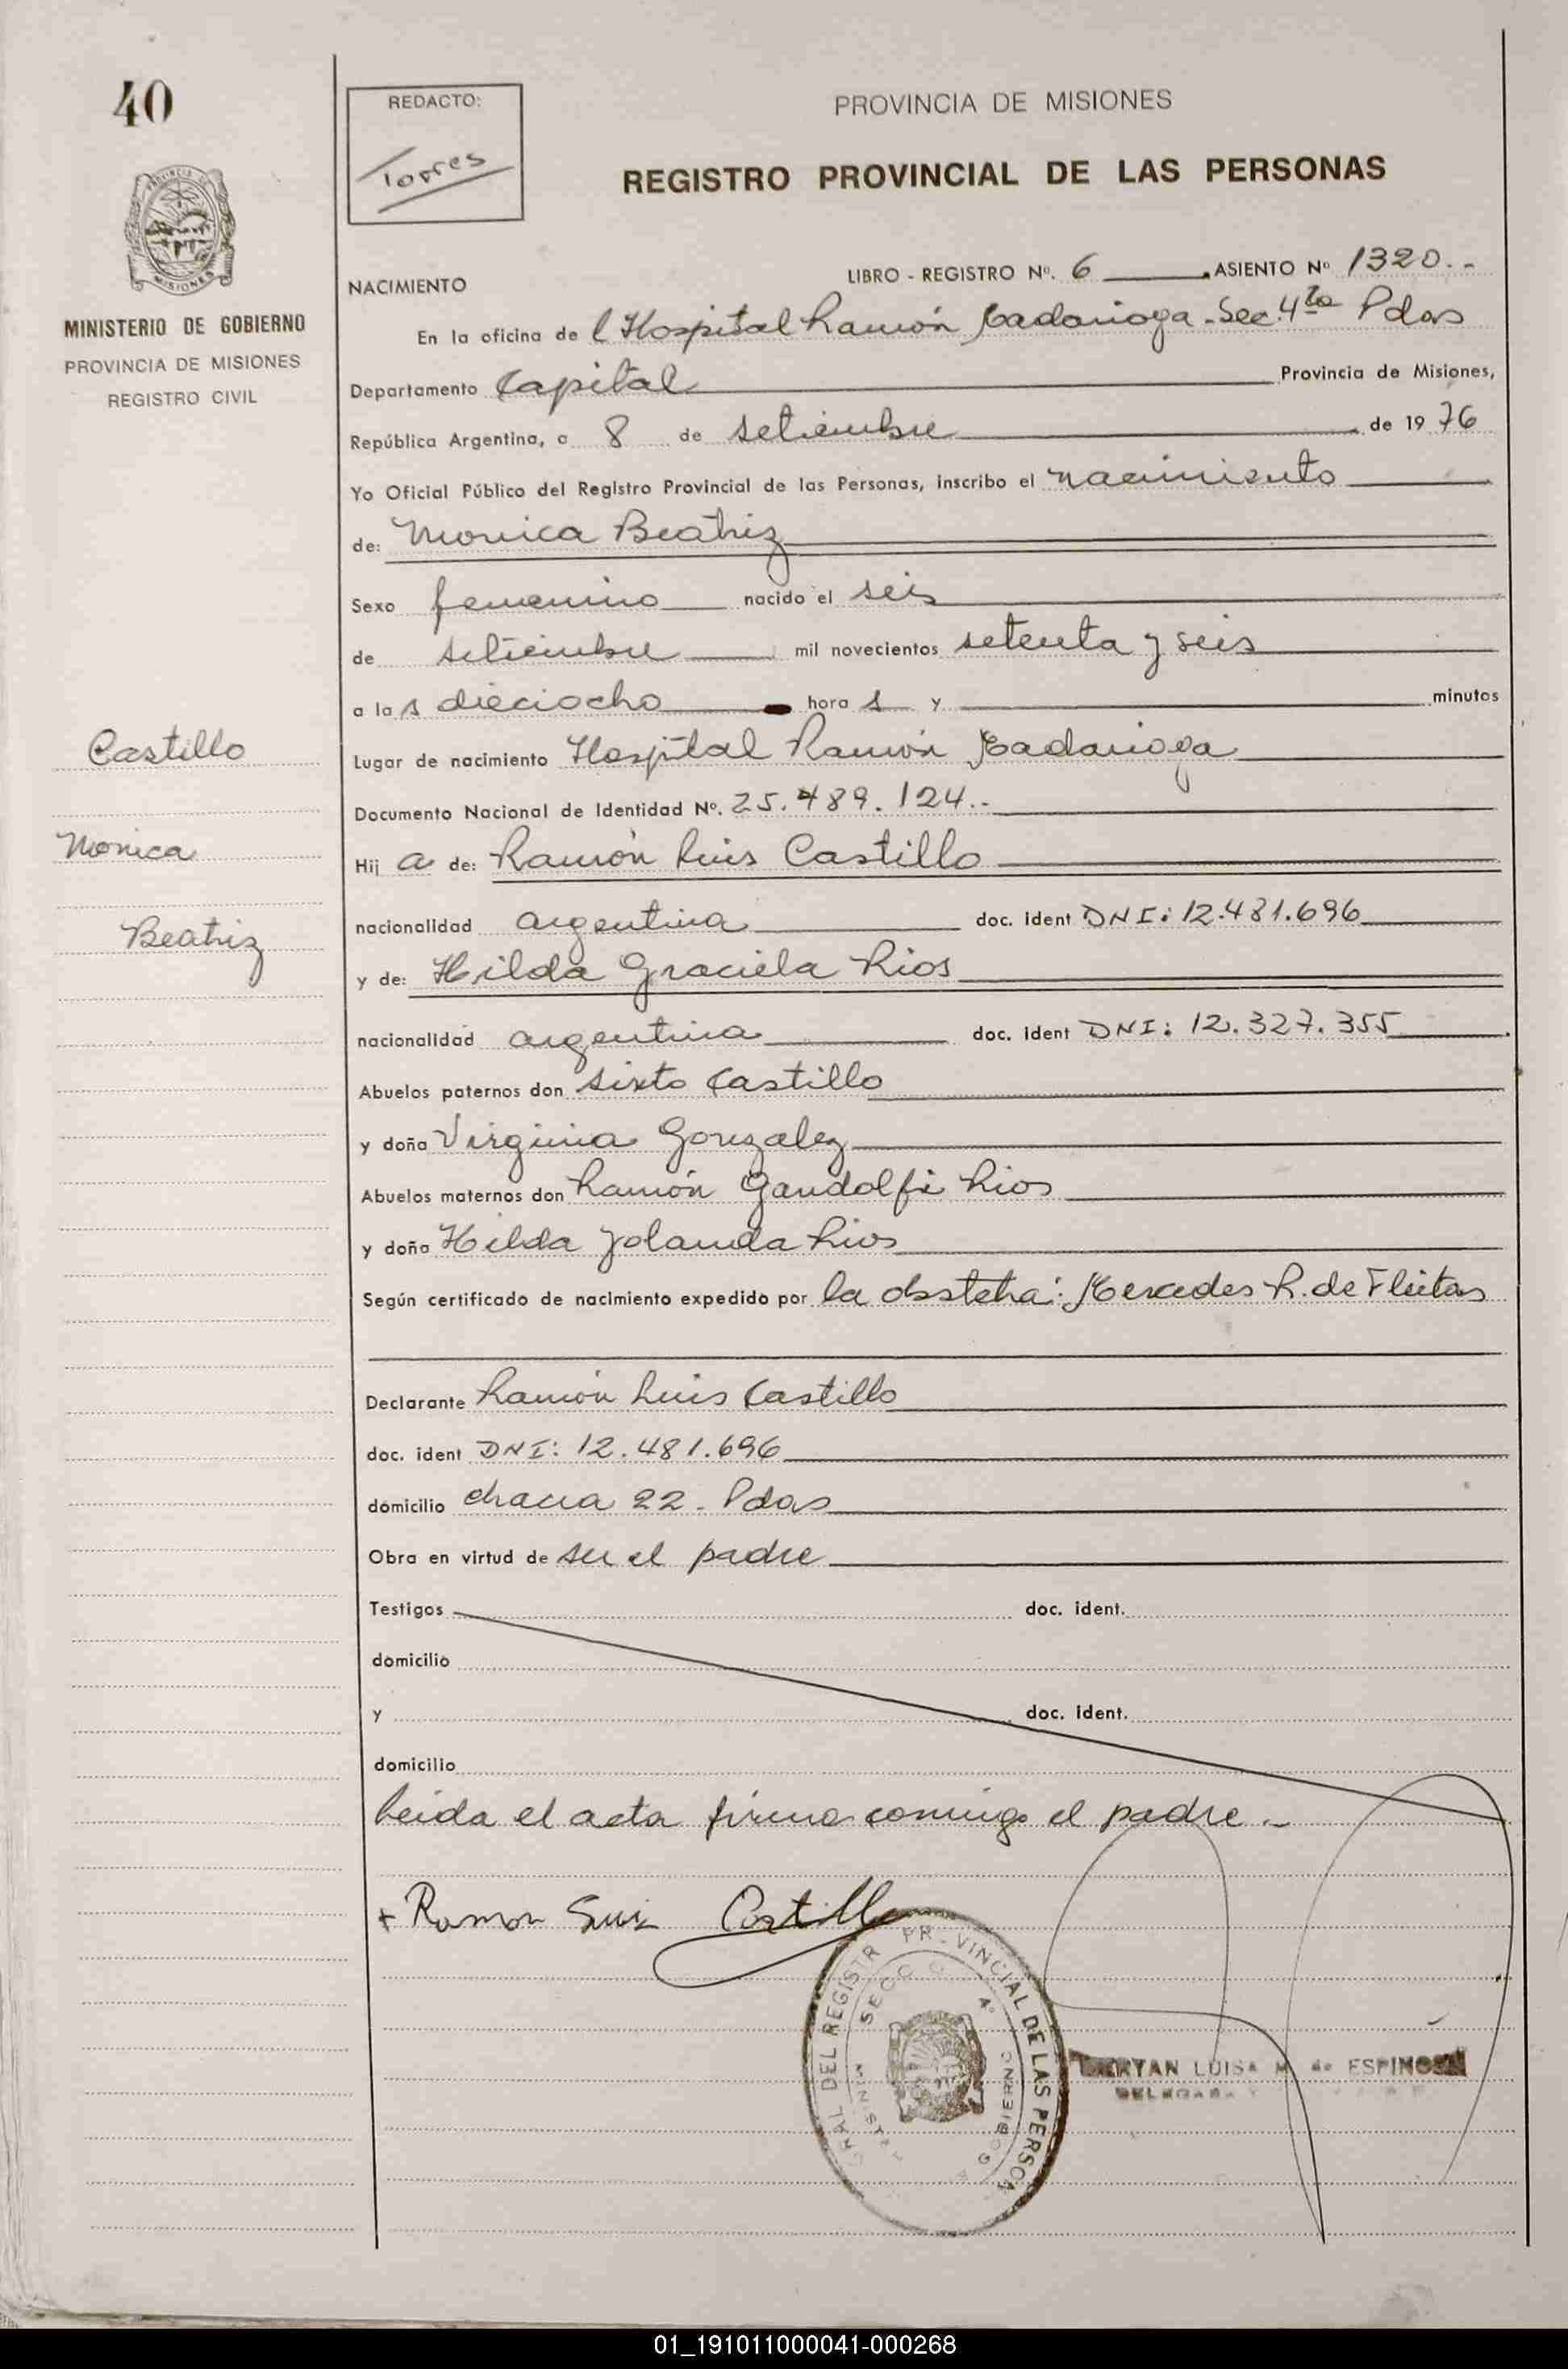 40
REDACTO:
Torres
PROVINCIA DE MISIONES
REGISTRO PROVINCIAL DE LAS PERSONAS
MINISTERIO DE GOBIERNO
PROVINCIA DE MISIONES
REGISTRO CIVIL
LIBRO - REGISTRO Nº. 6 ASIENTO Nº 1320.-
NACIMIENTO
En la oficina de l Hospital Ramón Madariaga - Sec. 4ta Pdas
Departamento Capital Provincia de Misiones,
República Argentina, a 8 de setiembre de 19 76
Yo Oficial Público del Registro Provincial de las Personas, inscribo el nacimiento
de: Monica Beatriz
Sexo femenino nacido el seis
de setiembre mil novecientos setenta y seis
a las dieciocho hora s y minutos
Castillo
Lugar de nacimiento Hospital Ramón Madariaga
Documento Nacional de Identidad Nº. 25.489.124.-
Monica
Hij a de: Ramón Luis Castillo
Beatriz
nacionalidad argentina doc. ident DNI: 12.481.696
y de: Hilda Graciela Rios
nacionalidad argentina doc. ident DNI: 12.327.355
Abuelos paternos don Sixto Castillo
y doña Virginia Gonzalez
Abuelos maternos don Ramón Gandolfi Rios
y doña Hilda Yolanda Rios
Según certificado de nacimiento expedido por la obstetra: Mercedes R. de Fleitas
Declarante Ramón Luis Castillo
doc. ident DNI: 12.481.696
domicilio chacra 22 - Pdas
Obra en virtud de ser el padre
Testigos doc. ident.
domicilio
y doc. ident.
domicilio
Leida el acta firma conmigo el padre.-
+ Ramon Luis Castillo
DEL REGISTR PR VINCIAL DE LAS PERSON
SECC 4º
MINIST GOBIERNO
LUISA M. de ESPINOSA
01_191011000041-000268